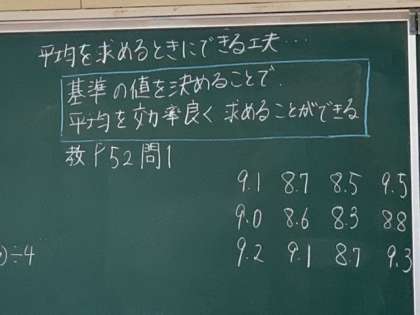 平均を求めるときにできる工夫…
基準の値を決めることで、
平均を効率良く求めることができる
教P52問1
9.1 8.7 8.5 9.5
9.0 8.6 8.3 8.8
)÷4 9.2 9.1 8.7 9.3